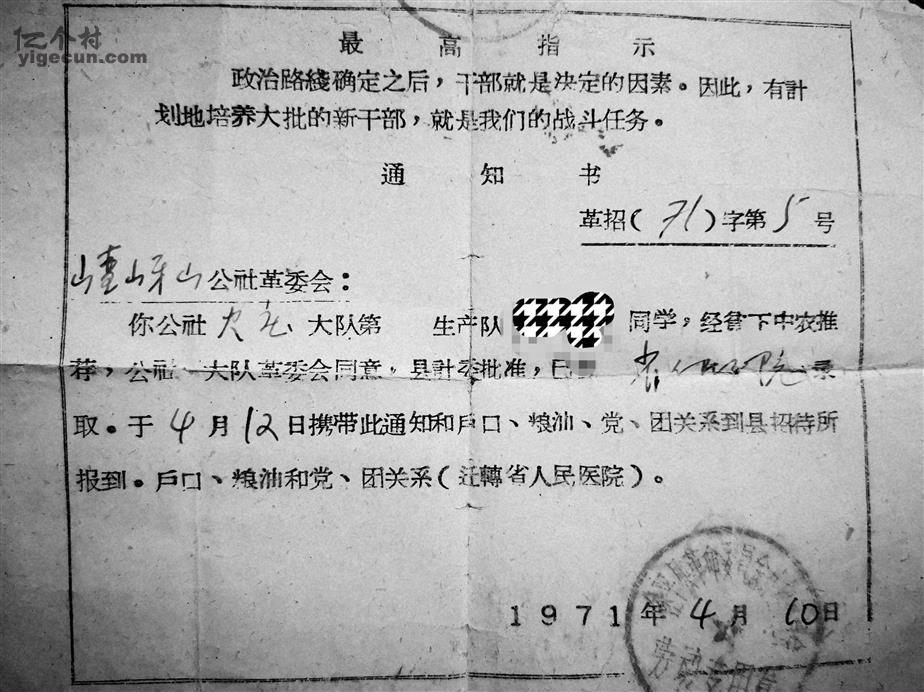 亿个村
yigecun.com
最高指示
政治路綫确定之后，干部就是决定的因素。因此，有計
划地培养大批的新干部，就是我们的战斗任务。
通知书
革招（71）字第5号
嵖岈山公社革委会：
你公社 大队第 生产队 同学，经贫下中农推
荐，公社 大队革委会同意，县計委批准，已 录
取。于4月12日携带此通知和戶口、粮油、党、团关系到县招待所
报到。戶口、粮油和党、团关系（迁轉省人民医院）。
1971年4月10日
劳动专用章